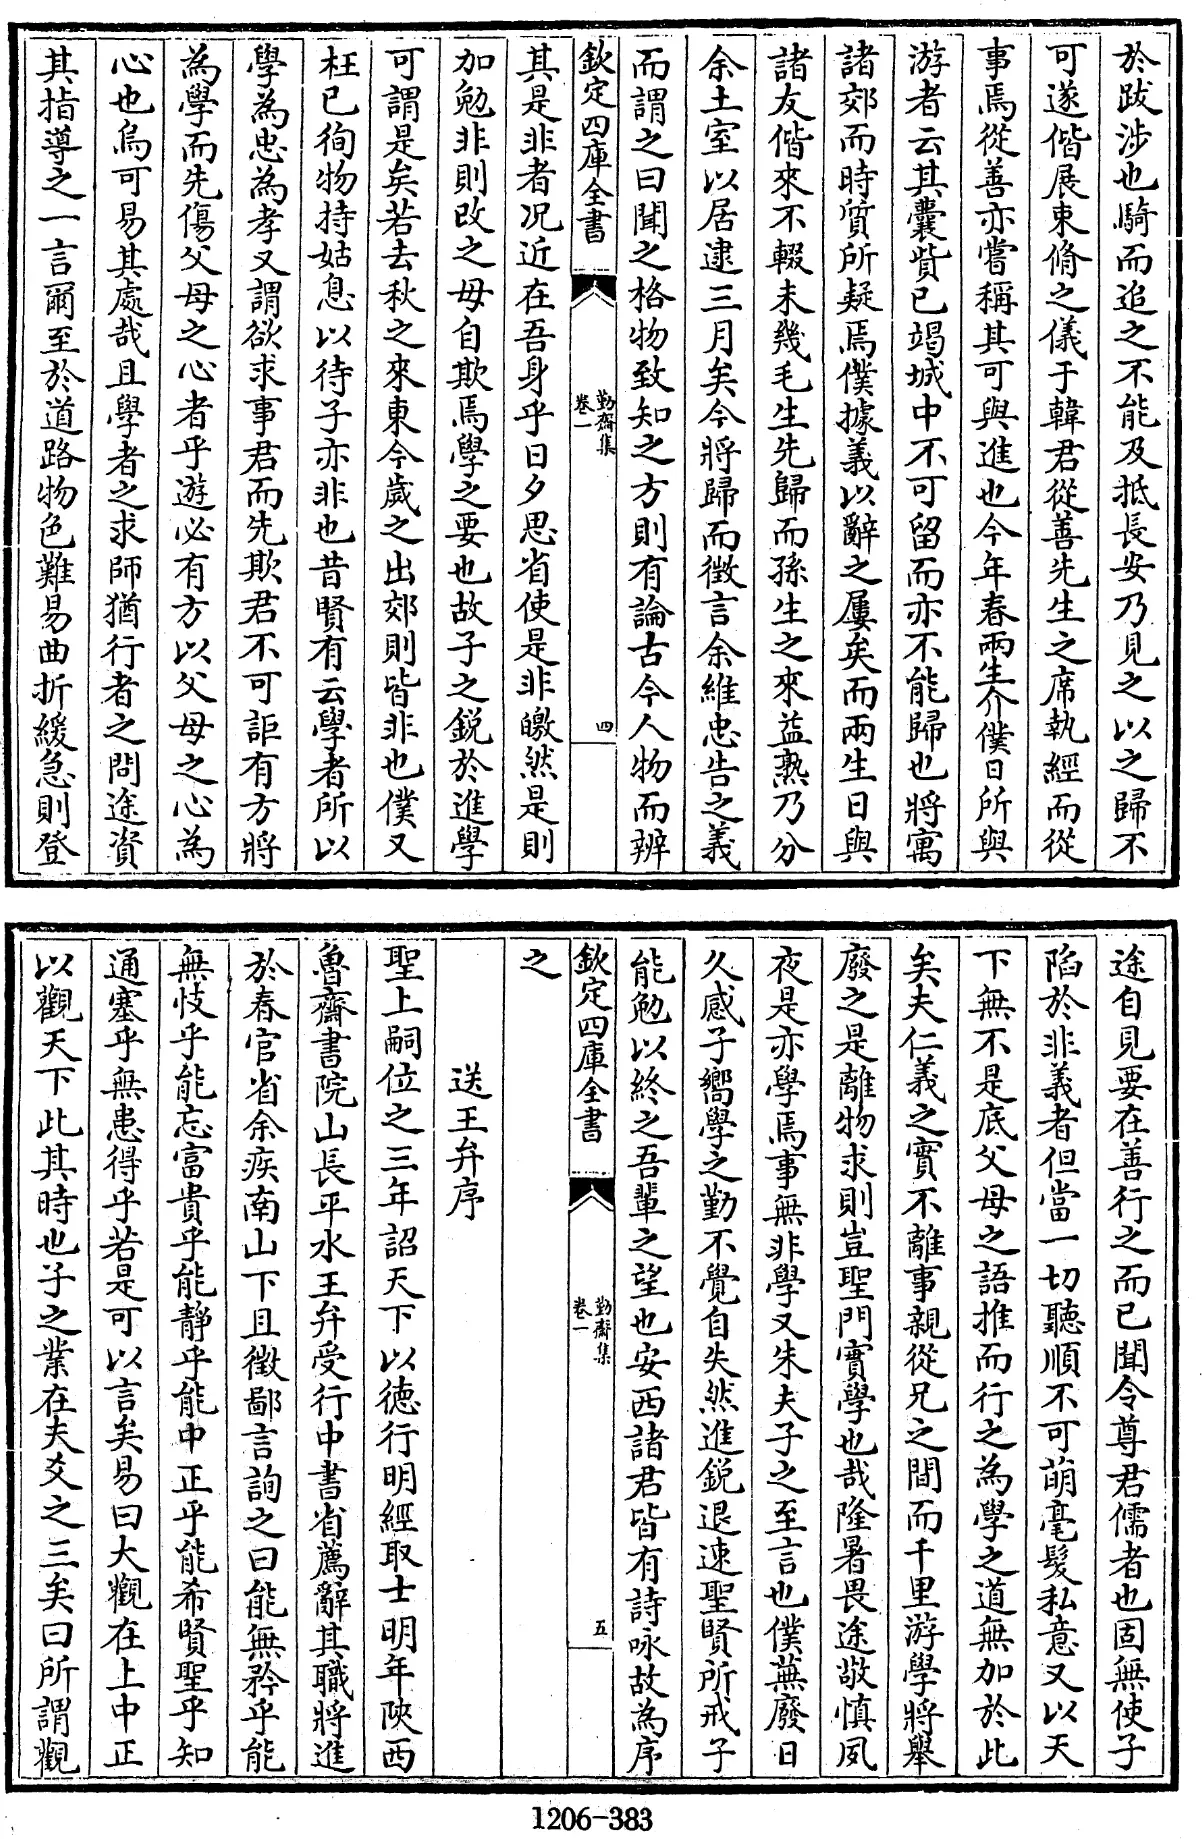 於跋涉也騎而追之不能及抵長安乃見之以之歸不
可遂偕展束脩之儀于韓君從善先生之席執經而從
事焉從善亦嘗稱其可與進也今年春兩生介僕日所與
游者云其囊貲已竭城中不可留而亦不能歸也將寓
諸郊而時質所疑焉僕據義以辭之屢矣而兩生日與
諸友偕來不輟未幾毛生先歸而孫生之來益熟乃分
余土室以居逮三月矣今將歸而徵言余維忠告之義
而謂之曰聞之格物致知之方則有論古今人物而辨
欽定四庫全書
勤齋集
卷一
四
其是非者况近在吾身乎日夕思省使是非皦然是則
加勉非則改之毋自欺焉學之要也故子之銳於進學
可謂是矣若去秋之來東今歲之出郊則皆非也僕又
枉已徇物持姑息以待子亦非也昔賢有云學者所以
學為忠為孝又謂欲求事君而先欺君不可詎有方將
為學而先傷父母之心者乎遊必有方以父母之心為
心也烏可易其處哉且學者之求師猶行者之問途資
其指導之一言爾至於道路物色難易曲折緩急則登
途自見要在善行之而已聞令尊君儒者也固無使子
陷於非義者但當一切聽順不可萌毫髮私意又以天
下無不是底父母之語推而行之為學之道無加於此
矣夫仁義之實不離事親從兄之間而千里游學將舉
廢之是離物求則豈聖門實學也哉隆暑畏途敬慎夙
夜是亦學焉事無非學又朱夫子之至言也僕蕪廢日
久感子嚮學之勤不覺自失然進銳退速聖賢所戒子
能勉以終之吾輩之望也安西諸君皆有詩咏故為序
欽定四庫全書
勤齋集
卷一
五
之
送王弁序
聖上嗣位之三年詔天下以德行明經取士明年陝西
魯齋書院山長平水王弁受行中書省薦辭其職將進
於春官省余疾南山下且徵鄙言詢之曰能無矜乎能
無忮乎能忘富貴乎能靜乎能中正乎能希賢聖乎知
通塞乎無患得乎若是可以言矣易曰大觀在上中正
以觀天下此其時也子之業在夫爻之三矣曰所謂觀
1206-383